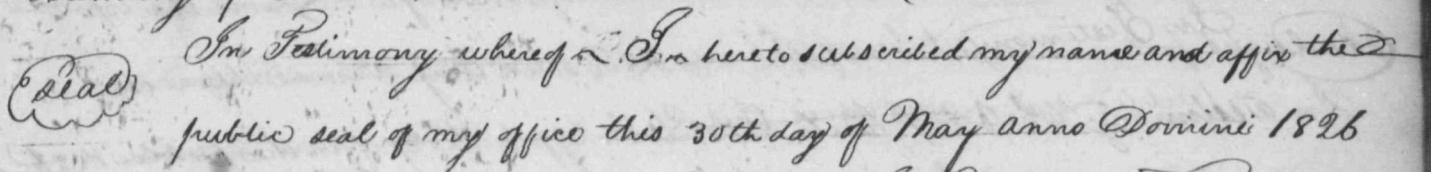 In Testimony whereof I hereto subscribed my name and affix the
seal
public seal of my office this 30th day of May anno Domini 1826